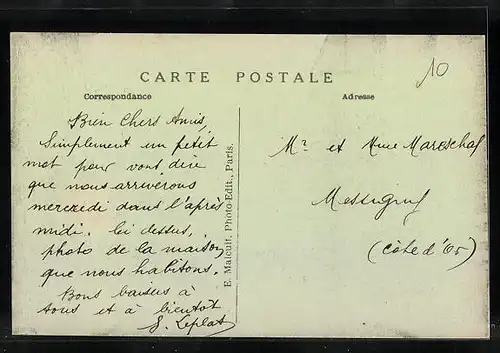 10
CARTE POSTALE
Correspondance
Adresse
Bien Chers Amis,
Simplement un petit
mot pour vous dire
que nous arriverons
mercredi dans l'après
midi. Ci dessus,
photo de la maison
que nous habitons.
Bons baisers à
tous et à bientôt
G. Leplat
E. Malcuit, Photo-Edit., Paris.
Mr et Mme Mareschal
Messigny
(Côte d'Or)